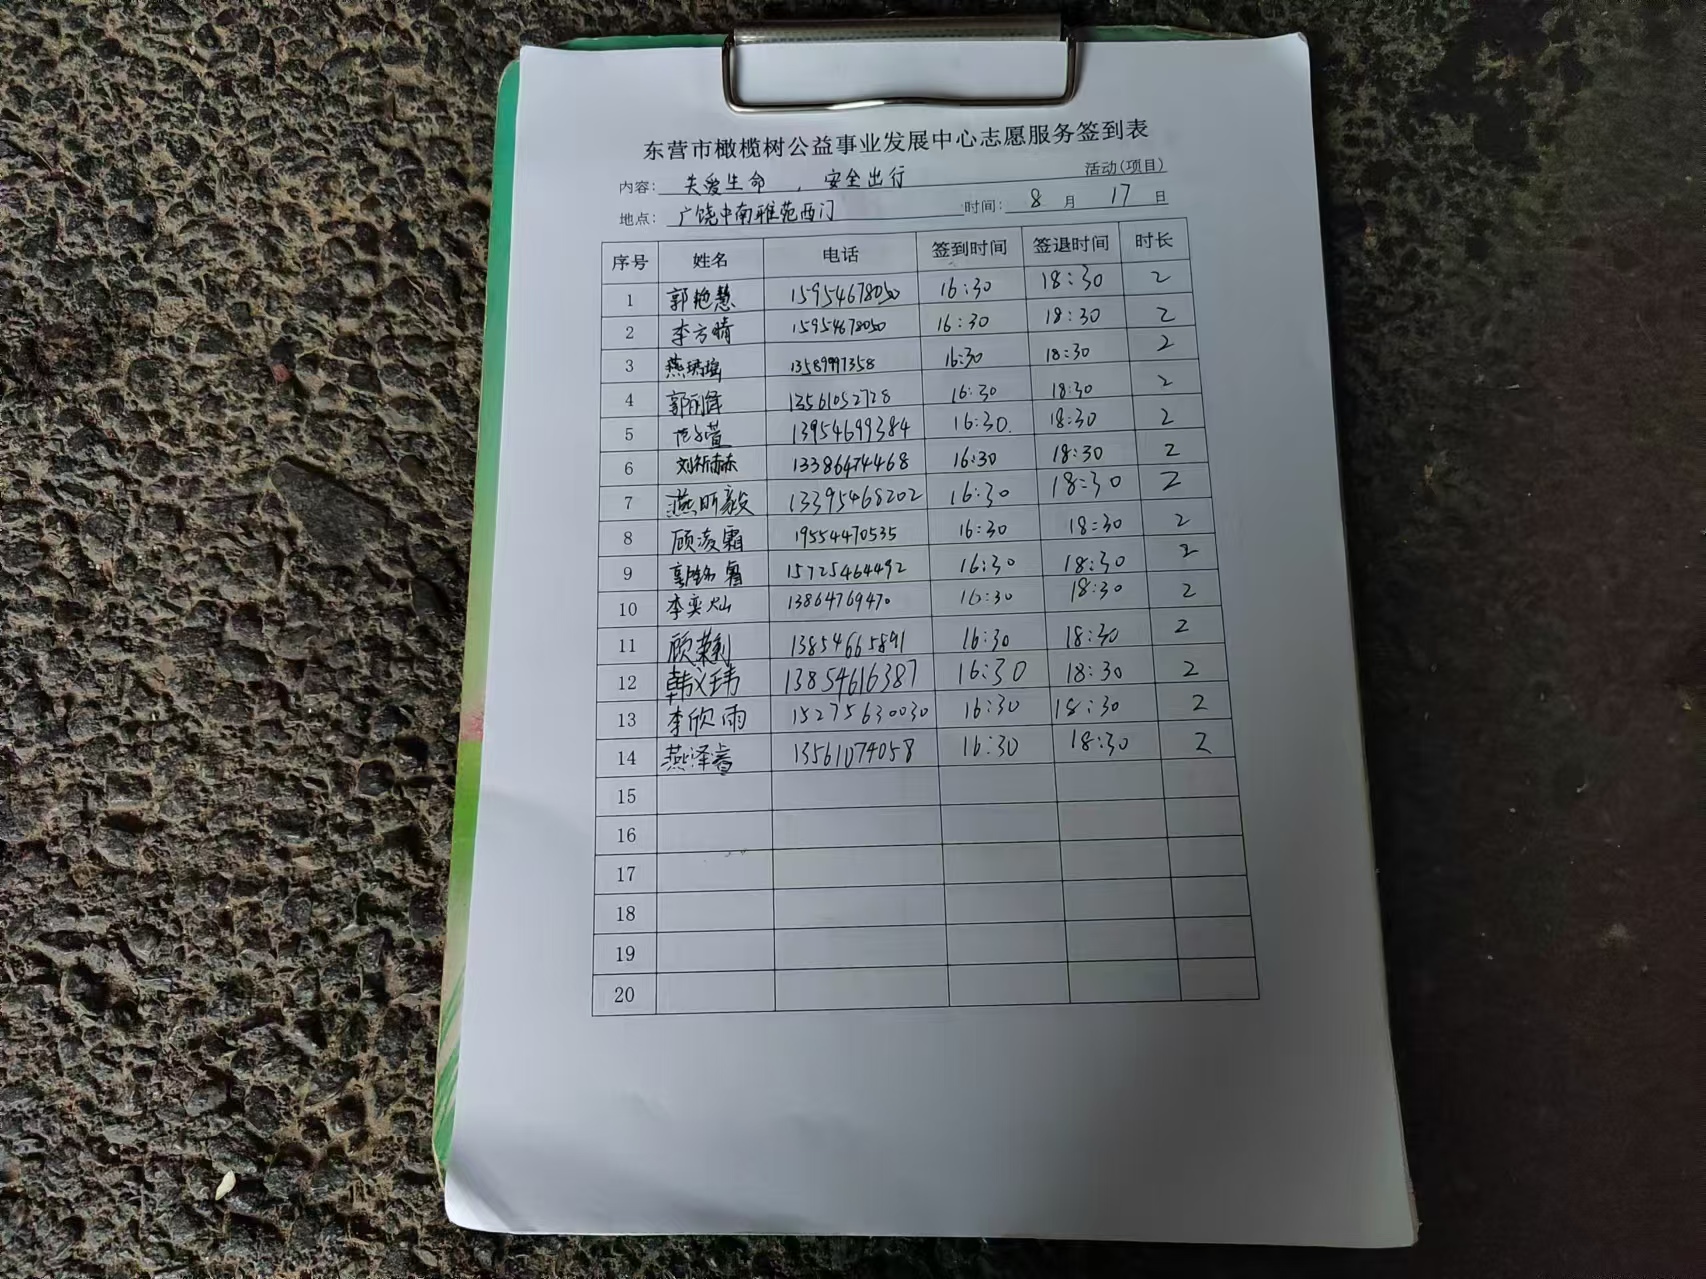 东营市橄榄树公益事业发展中心志愿服务签到表
内容： 关爱生命 ，安全出行 活动(项目)
地点： 广饶中南雅苑西门 时间： 8 月 17 日
序号 姓名 电话 签到时间 签退时间 时长
1 郭艳慧 15954678050 16:30 18:30 2
2 李方晴 15954678050 16:30 18:30 2
3 燕琇瑶 13589997358 16:30 18:30 2
4 13561052728 16:30 18:30 2
5 范子萱 13954699384 16:30 18:30 2
6 刘祈赫 13386474468 16:30 18:30 2
7 燕昕毅 13395468202 16:30 18:30 2
8 顾凌霜 19554470535 16:30 18:30 2
9 15725464492 16:30 18:30 2
10 李奕灿 13864769470 16:30 18:30 2
11 顾莉 13854665891 16:30 18:30 2
12 韩义玮 13854616387 16:30 18:30 2
13 李欣雨 15275630030 16:30 18:30 2
14 燕泽睿 13561074058 16:30 18:30 2
15
16
17
18
19
20